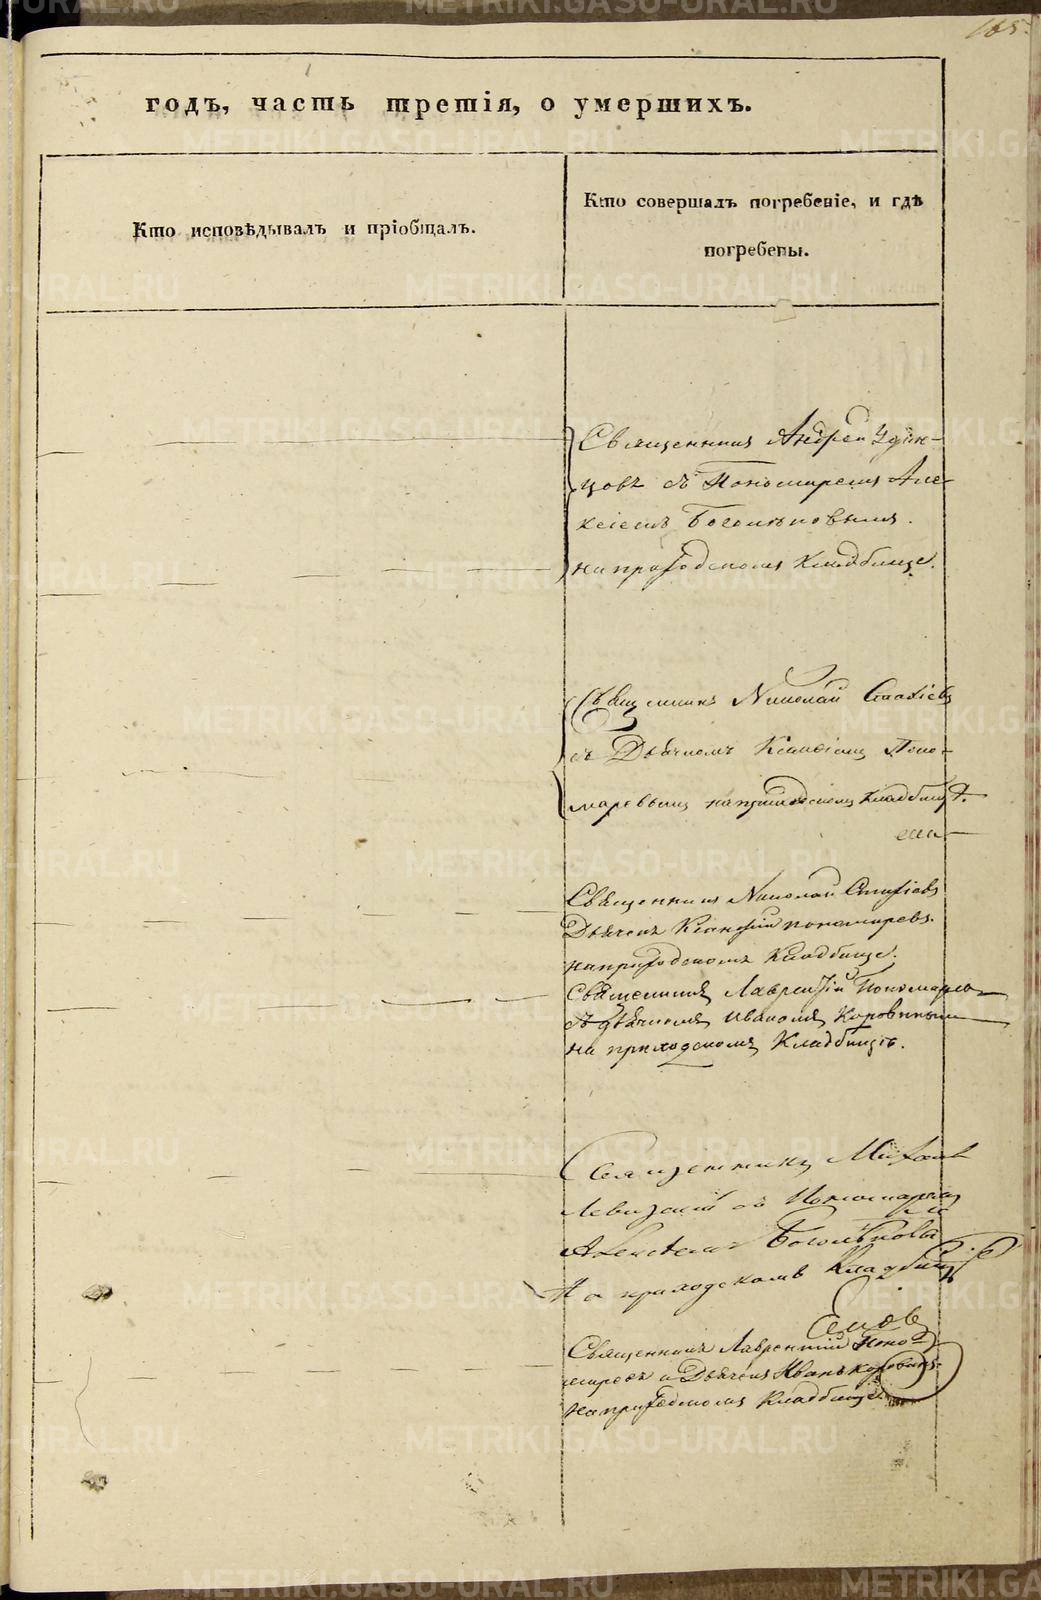 165.
годъ, часть третія, о умершихъ.
Кто исповѣдывалъ и пріобщалъ.
Кто совершалъ погребеніе, и гдѣ
погребены.
Священникъ Андрей Удин-
цовъ съ Пономаремъ Але-
ксіемъ Боголѣповымъ.
на приходскомъ Кладбище.
Священникъ Николай Стахіевъ
съ Дьячкомъ Поно-
маревымъ на приходскомъ Кладбищѣ.
Священникъ Николай Стахіевъ
Дьячекъ пономаревъ.
на приходскомъ Кладбище.
Священникъ Лаврентій Пономарев
съ дьячкомъ Иваномъ Коровиным
на приходскомъ Кладбищѣ.
Священникъ Михаил
Левицкій съ Пономаремъ
Алексѣемъ Боголѣповы
На приходскомъ Кладбище
Священникъ Лаврентій Поно-
маревъ и Дьячекъ Иванъ Коровинъ.
на приходскомъ Кладбище.
METRIKI.GASO-URAL.RU